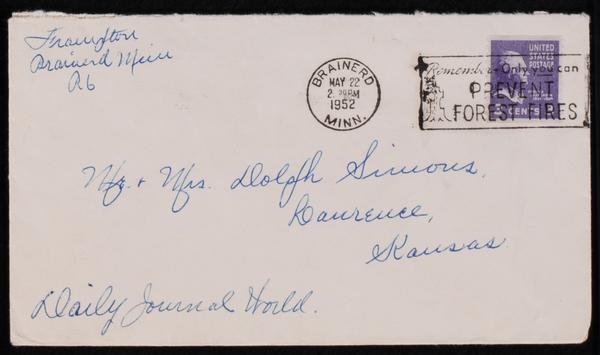 Frampton
Brainerd Minn
R6
BRAINERD
MAY 22
2 PM
1952
MINN.
UNITED
STATES
POSTAGE
Remember-Only you can
PREVENT
FOREST FIRES
3 CENTS
Mr. + Mrs. Dolph Simons,
Lawrence,
Kansas
Daily Journal World.